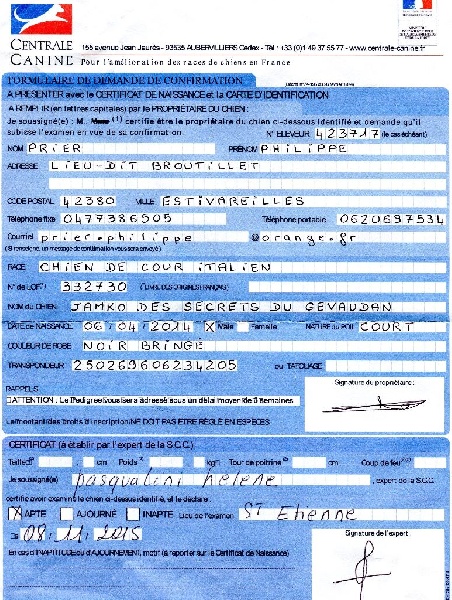 CENTRALE
CANINE
155 avenue Jean Jaurès - 93535 AUBERVILLIERS Cedex - Tél : +33 (0)1 49 37 55 77 - www.centrale-canine.fr
Pour l'amélioration des races de chiens en France
FORMULAIRE DE DEMANDE DE CONFIRMATION
A PRESENTER avec le CERTIFICAT DE NAISSANCE et la CARTE D'IDENTIFICATION
A REMPLIR (en lettres capitales) par le PROPRIÉTAIRE DU CHIEN :
Je soussigné(e) : M., Mme (1) certifie être le propriétaire du chien ci-dessous identifié et demande qu'il
subisse l'examen en vue de sa confirmation.
N° ELEVEUR 423717 (le cas échéant)
NOM PRIER PRÉNOM PHILIPPE
ADRESSE LIEU-DIT BROUTILLET
CODE POSTAL 42380 VILLE ESTIVAREILLES
Téléphone fixe 0477386905 Téléphone portable 0620697534
Courriel prier.philippe @orange.fr
(Si renseigné, un message de confirmation vous sera envoyé)
RACE CHIEN DE COUR ITALIEN
N° de LOF 332730 (LIVRE DES ORIGINES FRANÇAIS)
NOM DU CHIEN JAMKO DES SECRETS DU GEVAUDAN
DATE DE NAISSANCE 06/04/2014 X Mâle Femelle NATURE DU POIL COURT
COULEUR DE ROBE NOIR BRINGÉ
TRANSPONDEUR 250269606234205 ou TATOUAGE
RAPPELS
ATTENTION : Le Pedigree vous sera adressé sous un délai moyen de 3 semaines
Le montant des droits d'inscription NE DOIT PAS ETRE RÉGLÉ EN ESPÈCES
Signature du propriétaire :
CERTIFICAT (à établir par l'expert de la S.C.C.)
Taille cm Poids kg Tour de poitrine cm Coup de feu
Je soussigné(e) pasqualini hélène, expert de la S.C.C.
certifie avoir examiné le chien ci-dessus identifié, et le déclare
X APTE AJOURNÉ INAPTE Lieu de l'examen ST Etienne
Le 08.11.2015
Signature de l'expert
En cas d'INAPTITUDE ou d'AJOURNEMENT, motif (à reporter sur le Certificat de Naissance)